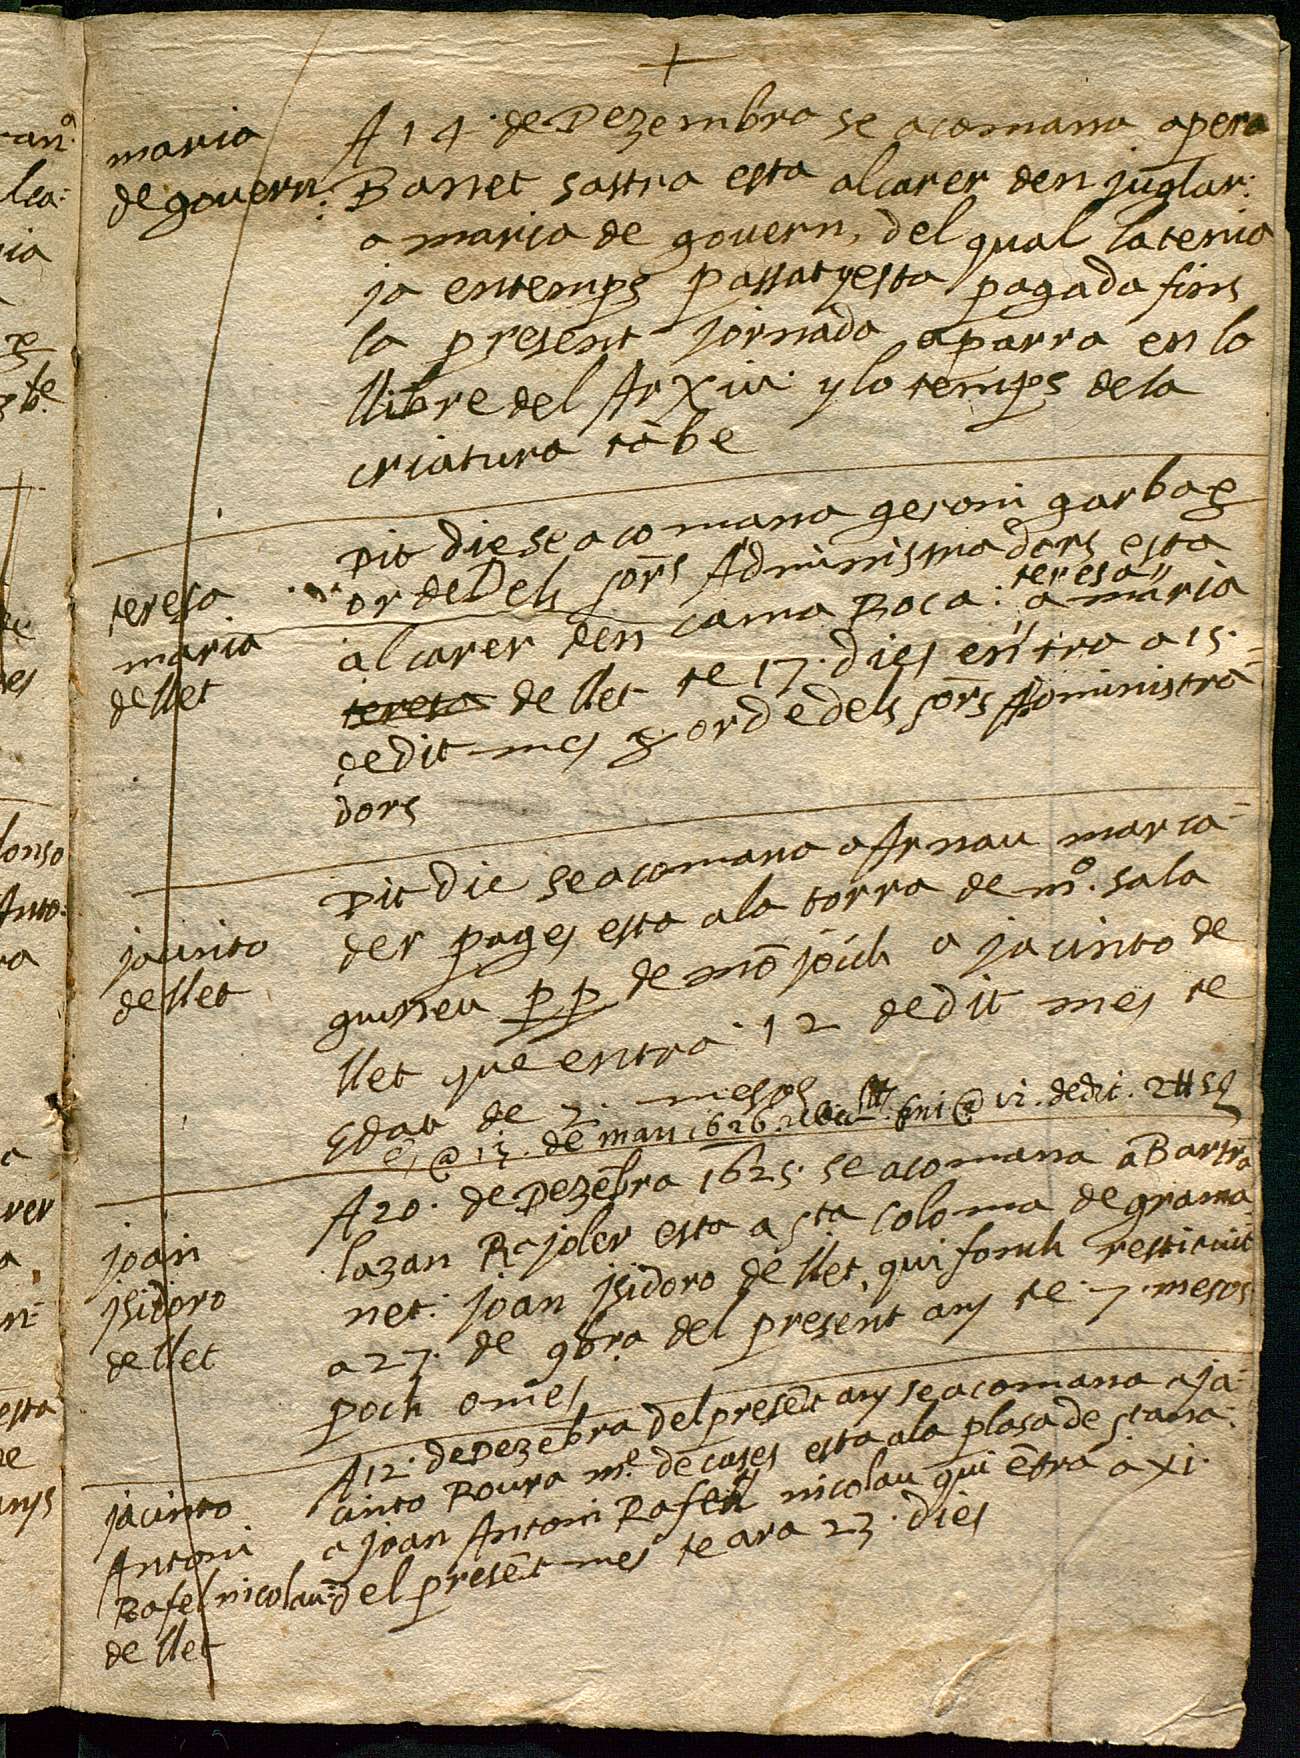 +
maria
de govern:
A 14. de Dezembra se acomana apera
Banet sastra esta alcarer den juglar:
a maria de govern, del qual latenia
ja entemps passat yesta pagada fins
la present jornada aparra en lo
llibre del Arxiu. y lo temps dela
criatura tãbe
teresa
maria
de llet
Dit die se acomana geroni garba p
orde Dels sors Administradors esta
al carer den cama Roca: teresa
a maria
teresa de llet te 17. dies entra a 15.
de dit mes p orde dels sors Administra
dors
jacinto
de llet
Dit die se acomana a Arnau marca-
der pages esta ala torra de mo. sala
guineu pp de mõ joich a jacinto de
llet que entra 12 de dit mes te
Edat de 2. mesos
@ 13. de mars 1626 @ 12. de dit. 2 ll 5 s
joan
jsidoro
de llet
A 20. de Dezebra 1625. se acomana a Bartra
lazan Rajoler esta a sta coloma de grama-
net: joan jsidoro de llet, qui fonch restituit
a 27. de 9bra del present any te. 7. mesos
poch o mes
jacinto
Antoni
Rafel nicolau
de llet
A 12. de Dezẽbra del presẽt any se acomana a ja-
cinto Roura me. de cases esta ala plasa de s. tana.
a joan Antoni Rafell nicolau qui ẽtra a xi.
del presẽt mes te ara 23. dies